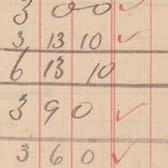 3 0 0 ✓
3 13 10 ✓
6 13 10
3 9 0 ✓
3 6 0 ✓